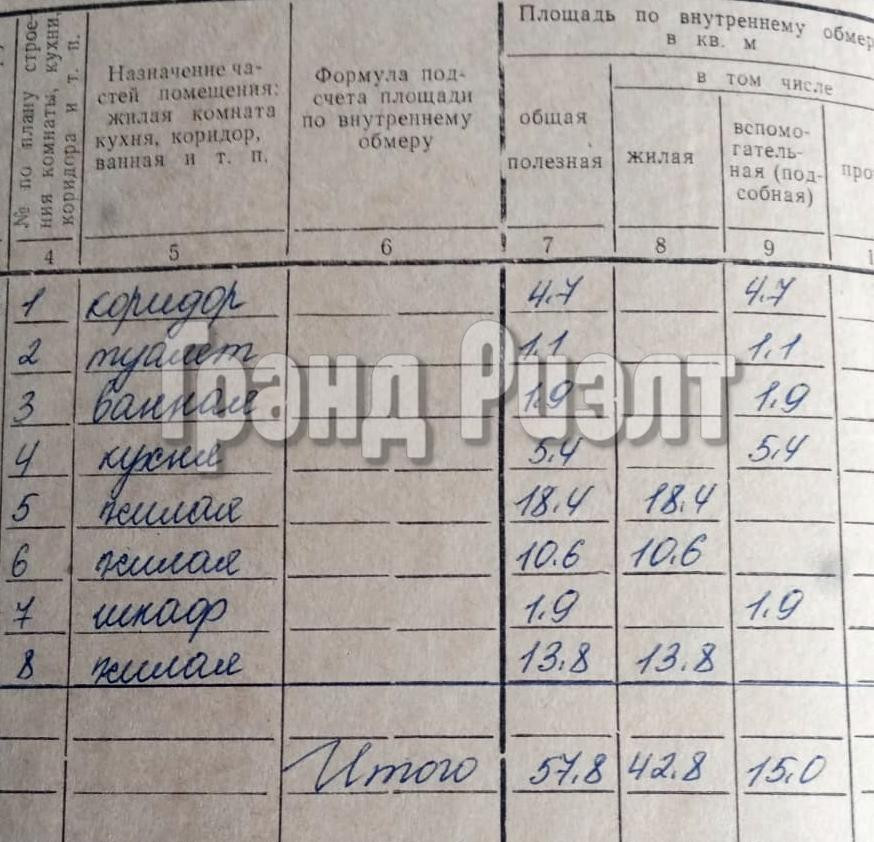 № по плану строе-
ния комнаты, кухни,
коридора и т. п.
Назначение ча-
стей помещения:
жилая комната
кухня, коридор,
ванная и т. п.
Формула под-
счета площади
по внутреннему
обмеру
Площадь по внутреннему обмер
в кв. м
общая
полезная
в том числе
жилая
вспомо-
гатель-
ная (под-
собная)
про
4 5 6 7 8 9 1
1 коридор 4.7 4.7
2 туалет 1.1 1.1
3 ванная 1.9 1.9
4 кухня 5.4 5.4
5 жилая 18.4 18.4
6 жилая 10.6 10.6
7 шкаф 1.9 1.9
8 жилая 13.8 13.8
Итого 57.8 42.8 15.0
Гранд Риэлт